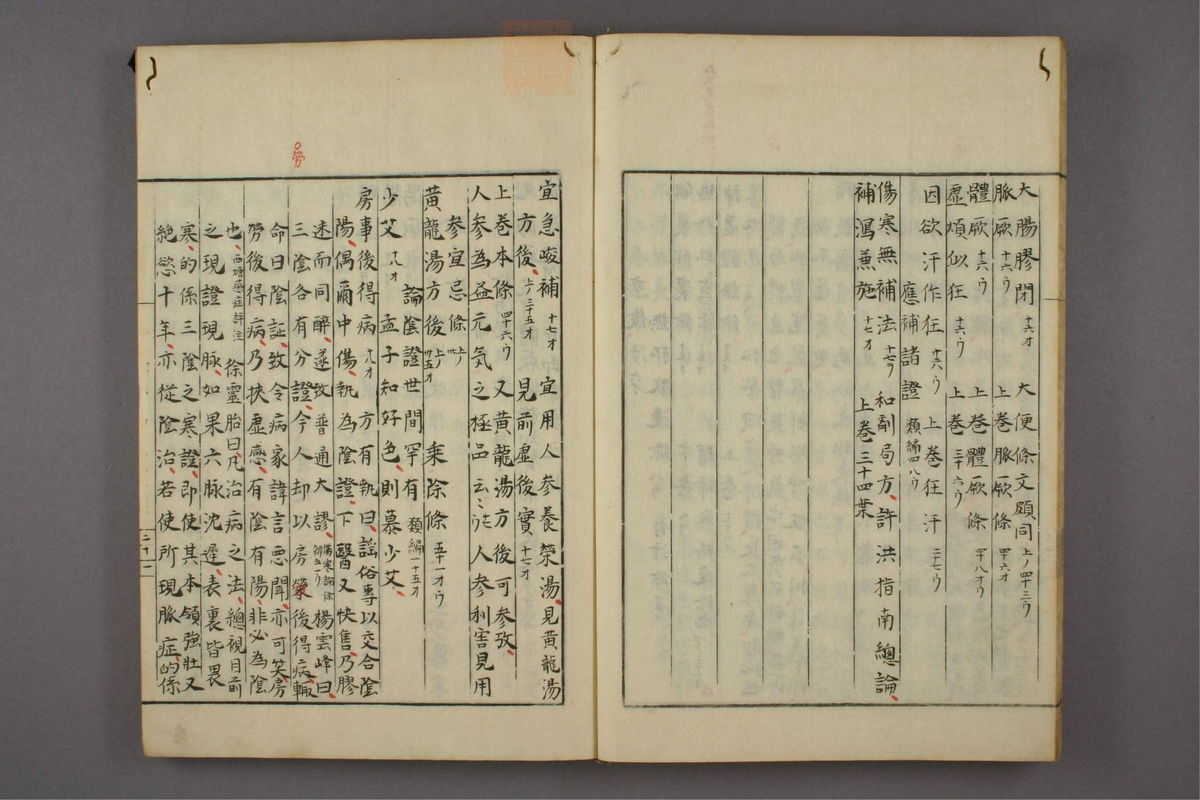 大腸膠閉 十六オ 大便條文頗同 上ノ四十三ウ
脈厥 十六ウ 上巻脈厥條 四十六オ
體厥 十六ウ 上巻體厥條 四十八オウ
虚煩似狂 十六ウ 上巻 三十六ウ
因欲汗作狂 十六ウ 上巻狂汗 三七ウ
應補諸證 類編四八ウ
傷寒無補法 十七ウ 和剤局方許洪指南總論
補瀉兼施 十七オ 上巻三十四葉
宜急峻補 十七オ 宜用人参養榮湯見黄龍湯
方後 上ノ三十五オ 見前虚後實 十七オ
上巻本條 四十六ウ 又黄龍湯方後可参攷
人参為益元気之極品云々 人参利害見用
参宜忌條 乘除條 五十一オウ
黄龍湯方後 上ノ卅五オ
論陰證世間罕有 類編一十五オ
少艾 十八オ 孟子知好色則慕少艾
房事後得病 十八オ 方有執曰謡俗專以交合陰
陽偶爾中傷執為陰證下醫又快售乃膠
迷而同醉遂致普通大謬 傷寒論條 楊雲峰曰
三陰各有分證今人却以房勞後得病輙
命曰陰証致令病家諱言悪聞亦可笑房
勞後得病乃挾虚感有陰有陽非必為陰
也 西塘感症評注 徐靈胎曰凡治病之法總視目前
之現證現脉如果六脉沈遲表裏皆畏
寒的係三陰之寒證即使其本領強壯又
絶慾十年亦從陰治若使所現脈症的係
勞
二十一